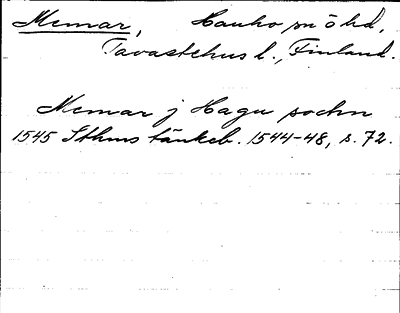 Memar, Hauho sn ö hd,
Tavastehus l., Finland.
Memar j Hagu sochn
1545 Sthms tänkeb. 1544-48, s. 72.